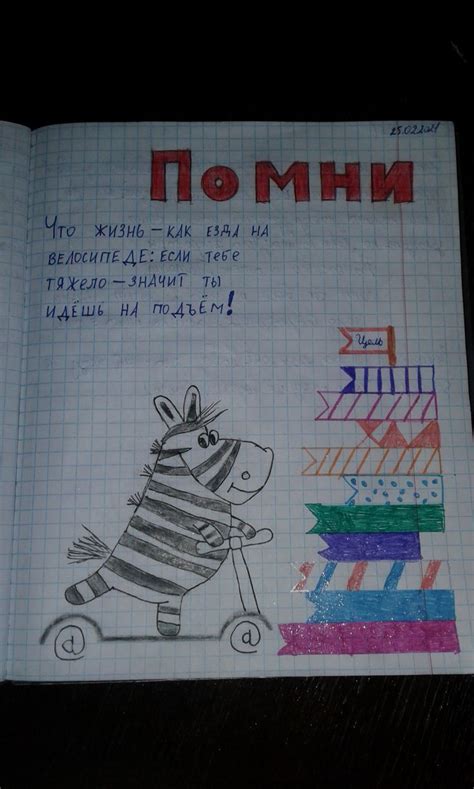 25.02.2021
Помни
Что жизнь – как езда на
велосипеде: если тебе
тяжело – значит ты
идёшь на подъём!
Цель
@ @